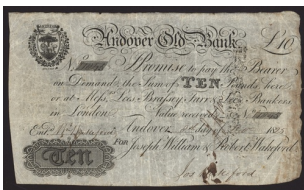 Andover Old Bank £10
No I Promise to pay the Bearer
on Demand the Sum of TEN Pounds here
or at Messrs Lees Brassey Farr Lees Bankers
in London. Value received
Andover, day of 1823
Entd
For Joseph William & Robert Wakeford
TEN
Jos Wakeford